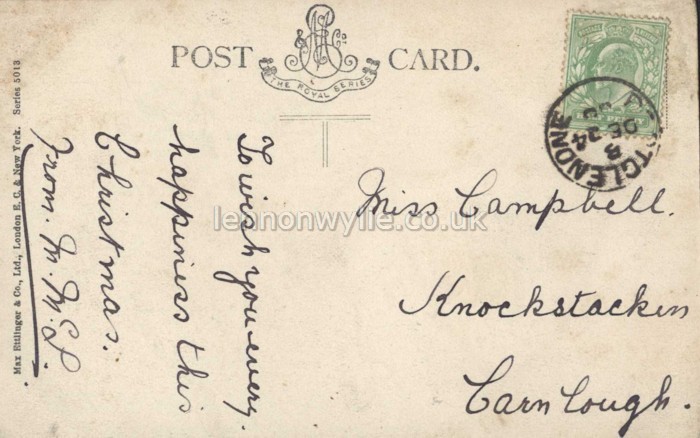 POST CARD.
THE ROYAL SERIES
To wish you every
happiness this
Christmas.
From. M. McL.
Miss Campbell.
Knockstacken
Carnlough.
PORTGLENONE
DE 24
lennonwylie.co.uk
Max Ettlinger & Co., Ltd., London E. C. & New York. Series 5013